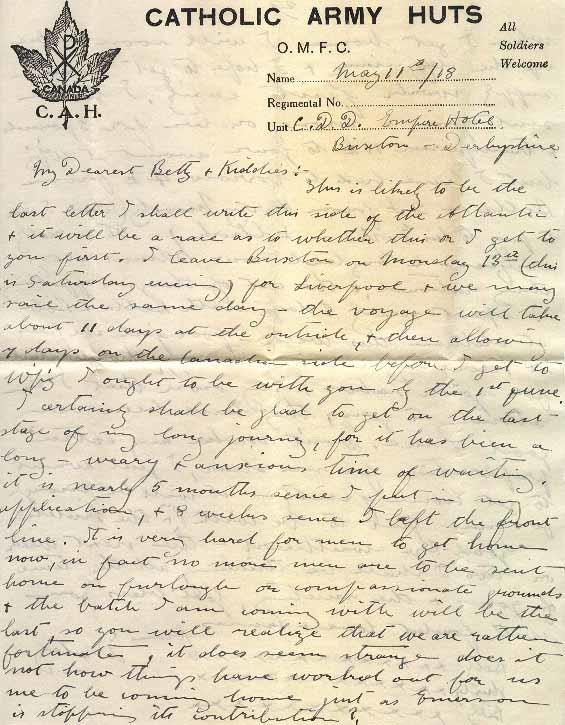 CATHOLIC ARMY HUTS
O. M. F. C.
All
Soldiers
Welcome
CANADA
C. A. H.
Name May 11th/18
Regimental No.
Unit C. D. D. Empire Hotel
Buxton - Derbyshire
My Dearest Betty & Kiddies:-
This is likely to be the
last letter I shall write this side of the Atlantic
& it will be a race as to whether this or I get to
you first. I leave Buxton on Monday 13th (this
is Saturday evening) for Liverpool & we may
sail the same day - the voyage will take
about 11 days at the outside, & then allowing
7 days on the Canadian side before I get to
Wpg I ought to be with you by the 1st June.
I certainly shall be glad to get on the last
stage of my long journey, for it has been a
long - weary & anxious time of waiting.
it is nearly 5 months sence I put in my
application, & 8 weeks sence I left the front
line. It is very hard for men to get home
now, in fact no more men are to be sent
home on furlough on compassionate grounds
& the batch I am coming with will be the
last, so you will realize that we are rather
fortunate, it does seem strange does it
not how things have worked out for us
me to be coming home just as Emerson
is stopping its contribution?